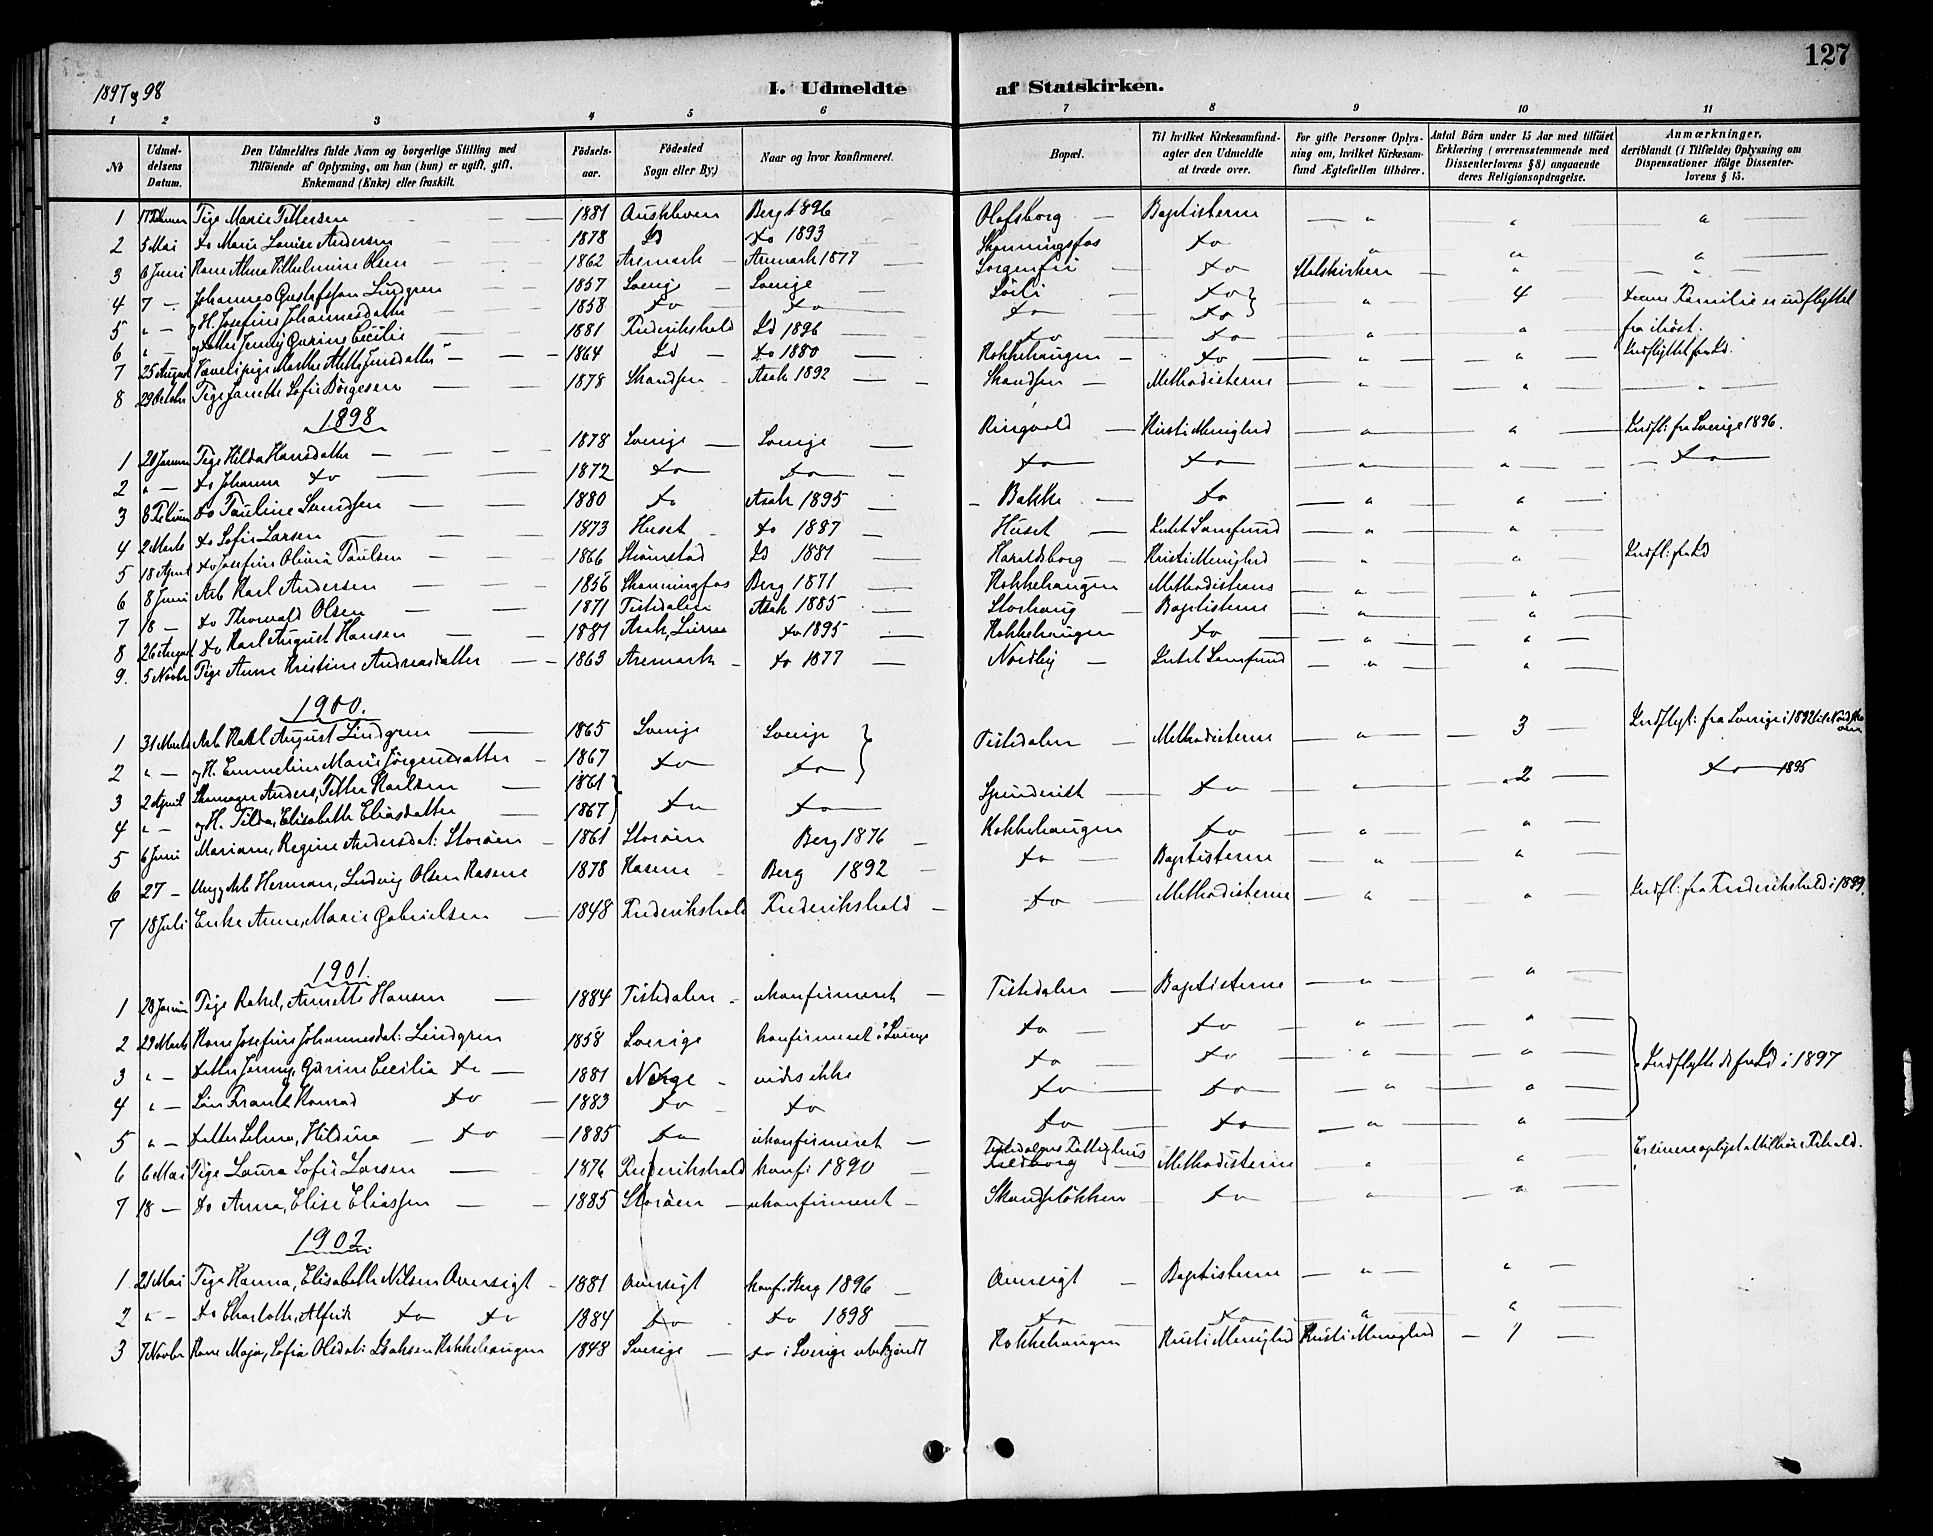 127
1897 og 98
I. Udmeldte af Statskirken.
1 2 3 4 5 6 7 8 9 10 11
No
Udmeldelsens Datum.
Den Udmeldtes fulde Navn og borgerlige Stilling med Tilføiende af Oplysning, om han (hun) er ugift, gift, Enkemand (Enke) eller fraskilt.
Fødselsaar.
Fødested Sogn eller By.)
Naar og hvor konfirmeret.
Bopæl.
Til hvilket Kirkesamfundagter den Udmeldte at træde over.
For gifte Personer Oplysning om, hvilket Kirkesamfund Ægtefællen tilhører.
Antal Børn under 15 Aar med tilføiet Erklæring (overensstemmende med Dissenterlovens § 8) angaaende deres Religionsopdragelse.
Anmærkninger. deriblandt (i Tilfælde) Oplysning om Dispensationer ifølge Dissenterlovens § 15.
1 Pige Marie Pettersen — 1881 Berg 1896 Olafsborg — Baptisterne — " — " — "
2 5 Mai do Marie Louise Andersen — 1878 Id do 1893 Skonningsfos do " " "
3 6 Juni Kone Alma Vilhelmine Olsen — 1862 Aremark — Aremark 1877 — Sorgenfri — do Statskirken — " — "
4 7 — Johannes Gustafsson Lindgren — 1857 Sverige — Sverige — do " 4 — denne Familie er indflyttet
5 " — og H. Josefine Johannesdatter — 1858 do do do — do
6 " — og datter Jenny Qurine Cecilie 1881 Frederikshald Id 1896 — do — do — " — " fra
7 25 August Marthe Jensdatter — 1864 Id — do 1880 — Kokkehaugen — do — " — " Indflyttet fra Id.
8 29 Oktober Pige Janette Sofie Børgesen — 1878 Skandsen — Asak 1892 — Skandsen — Methodisterne — " — " — "
1898
1 20 Januar Pige Hilda Hansdatter — 1878 Sverige — Sverige — Ringvold — Kristi Menighed — " — " — Indfl: fra Sverige 1896.
2 " — do Johanna do — 1872 do do — do — do — " — " — do —
3 8 Februar do Pauline Lundsen — 1880 do Asak 1895 — Bakke — do — " — "
4 2 Marts do Sofie Larsen — 1873 Huset — do 1887 — Huset — Luth Samfund — " — "
5 18 April do Josefine Olivia Paulsen — 1866 Strømstad Id 1881 — Haraldsborg — Kristi Menighed — " — " Indfl: fra Id
6 8 Juni Arb Karl Andersen — 1856 Skonningfos Berg 1871 — Kokkehaugen — — " — "
7 18 — do Thorvald Olsen — 1871 Tistedalen Asak 1885 — Storhaug — Baptisterne — " — "
8 26 August do Karl August Hansen — 1881 Asak, do 1895 — Kokkehaugen do — " — "
9. 5 Novbr Pige Anne Kristine Andreasdatter — 1863 Aremark — do 1877 — Nordby — Luth Samfund — " — "
1900.
1 31 Marts Arb Karl August Lindgren — 1865 Sverige Sverige Tistedalen — Methodisterne — " — 3 — Indflyt: fra Sverige i 1892
2 " — og H. Emmeline Marie Jørgensdatter — 1867 do do
3 2 April Skomager Anders, Petter Karlsen — 1861 do do — Spinderiet — do — " — 2 — do — 1895
4 " — og H. Tilda, Elisabeth Eliasdatter — 1867
5 6 Juni Mariane, Regine Andersdat: Storøen — 1861 Storøen Berg 1876 — Kokkehaugen do — " — "
6 27 — Ung Arb Herman, Ludvig Olsen Kasene 1878 Kasene — Berg 1892 — do — Baptisterne — " — "
7 18 Juli Enke Anne, Marie Gabrielsen — 1848 Frederikshald Frederikshald — do — Methodisterne — " — " Indfl: fra Frederikshald i 1899.
1901.
1 28 Januar Pige Rakel, Annette Hansen — 1884 Tistedalen — ukonfirmeret — Tistedalen — Baptisterne — " — "
2 29 Marts Kone Josefine Johannesdat: Lindgren 1858 Sverige konfirmeret i Sverige do — do — " — "
3 " — datter Jenny, Qurine Cecilia do — 1881 Norge — vides ikke do — do — " — " Indflyttede fra Id i 1897
4 " — Søn Frantz Konrad do — 1883 do — do do — do — " — "
5 " — datter Selma, Hildina — do — 1885 do ukonfirmeret — do — do — " — "
6 6 Mai Pige Laura Sofie Larsen — 1876 Frederikshald konfi 1890 — Tistedalens Fattighus Methodisterne — " — "
7 18 — do Anna, Elise Eliassen — 1885 Storøen — ukonfirmeret — Skandseløkken — do — " — "
1902.
1 21 Mai Pige Hanna, Elisabeth Nilsen Oversigt — 1881 Oversigt konf: Berg 1896 — Oversigt — Baptisterne — " — "
2 " — do Charlotte, Alfride do do 1884 do — do 1898 — do — do — " — "
3 7 Novbr Kone Maja, Sofia Olsdat: Isaksen Kokkehaugen 1848 Sverige — do i Sverige ubekjendt Kokkehaugen Kristi Menighed Kristi Menighed — 1 —